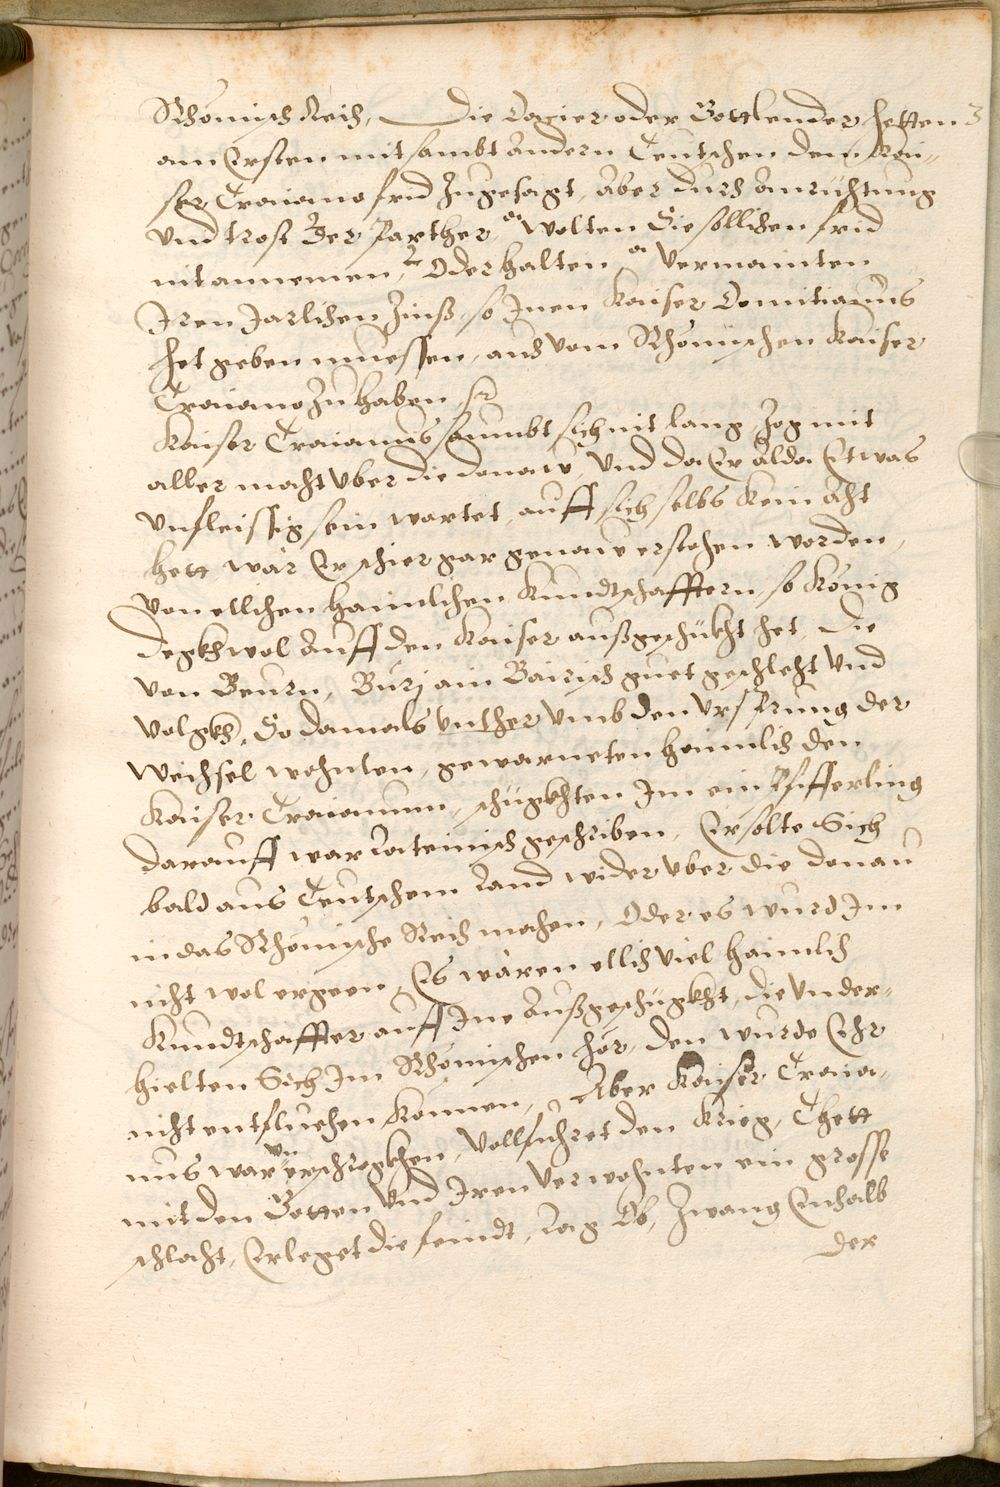 Rhömisch Reich, Die Dacier oder Gottlender hetten
am Ersten mit sambt andern Teutschen dem Kai-
ser Traiano frid Zugesagt, Aber durch anrichtung
und trost Der Parther, wolten Sie sollichen frid
nit annemen, Oder halten Vermainten
Jren Jarlichen Zinß, so Jnen Kaiser Domitianus
het geben muessen, auch vom Rhömischen Kaiser
Traiano Zu haben
Kaiser Traianus saumbt sich nit lang, Zog mit
aller macht uber die donaw, Und da Er alda Etwas
Unfleissig sein wartet, auff sich selbs Kein acht
hett wär Er schier gar genaw erstochen worden,
Von etlichen haimlichen Kundtschafftern, so König
degkhwol Auff den Kaiser außgeschükht het, Die
von Beurn, Burj ain Bairisch guet geschlecht Und
Volgkh, So damals Unther Umb den Ursprung der
Weichsel wohnten, gewarneten haimlich den
Kaiser Traianum, schügkhten Jm ein Pfifferling
darauff war Lateinisch geschriben, Er solte Sich
bald aus Teutschem Land wider uber die donau
in das Rhömische Reich machen, Oder es wurd Jm
nicht wol ergeen, Es wären etlich viel haimlich
Kundtschaffter auff Jne Außgeschügkht, die Under-
hielten Sich Jm Rhömischen hör, den wurde Ehr
nicht entfluehen Konnen, Aber Kaiser Traia-
nus war Unerschrogkhen, Vollfuhret den Krieg, Thett
mit den Gotten Und Jren Verwohnten ein grosse
schlacht, Erleget die feindt, Lag Ob, Zwang Enhalb
der